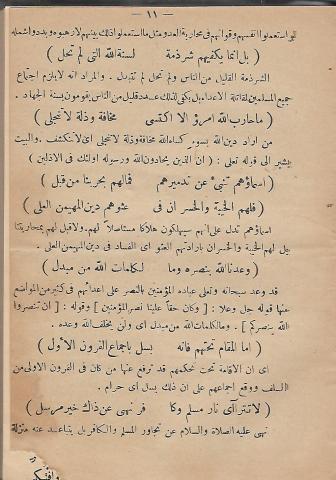 — ١١ —
لو استعملوا انفسهم وقواتهم في محاربة العدو مثل ما استعملوا ذلك بينهم لارهبوه وبددوا شمله
( بل انما يكفيهم شرذمة لسنة الله التى لم تحل )
الشرذمة القليل من الناس ولم تحل لم تتبدل . والمراد انه لا يلزم اجتماع
جميع المسلمين لمقاتلة الاعداء بل يكفى لذلك عدد قليل من الناس يقومون بسنة الجهاد .
( ما حارب الله امرؤ الا اكتسى مخافة وذلة لا تنجلى )
من اراد دين الله بسوء كساه الله مخافة وذلة لا تنجلى اى لا تنكشف . والبيت
يشير الى قوله تعلى : ( ان الذين يحادون الله ورسوله اولئك فى الاذلين )
( اسماؤهم تنبئ عن تدميرهم فمالهم بحربنا من قبل )
( فلهم الخيبة والخسران فى دين المهيمن العلى )
اسماؤهم تدل على انهم سيهلكون هلاكا مستأصلا لهم . ولا قبل لهم بمحاربتنا
بل لهم الخيبة والخسران بارادتهم العثو اى الفساد فى دين المهيمن العلى .
( وعدنا الله بنصره وما لكلمات الله من مبدل )
قد وعد سبحانه وتعلى عباده المؤمنين بالنصر على اعدائهم فى كثير من المواضع
منها قوله جل وعلا : [ وكان حقاً علينا نصر المؤمنين ] وقوله : [ ان تنصروا
الله ينصركم ] . وما لكلمات الله من مبدل اى ولن يخلف الله وعده .
( اما المقام تحتهم فانه بسل باجماع القرون الأول )
اى ان الاقامة تحت تحكمهم قد ترفع عنها من كان فى القرون الاولى من
السلف ووقع اجماعهم على ان ذلك بسل اى حرام .
( لا تتراآى نار مسلم وكا فر نهى عن ذاك خير مرسل )
نهى عليه الصلاة والسلام عن تجاور المسلم والكافر بل يتباعد عنه منزلة